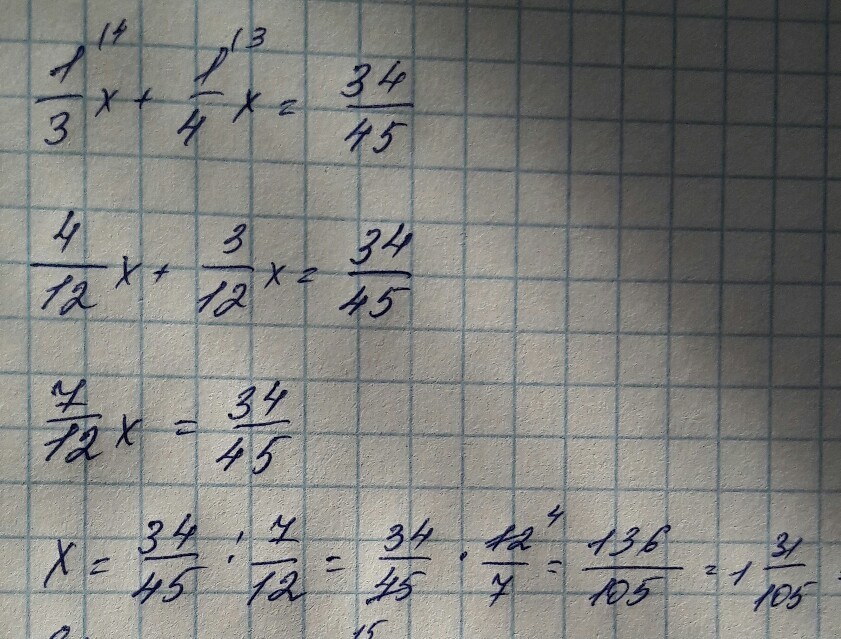 1/3 x + 1/4 x = 34/45 (4 (3
4/12 x + 3/12 x = 34/45
7/12 x = 34/45
x = 34/45 : 7/12 = 34/45 · 12/7 4 = 136/105 = 1 31/105
15